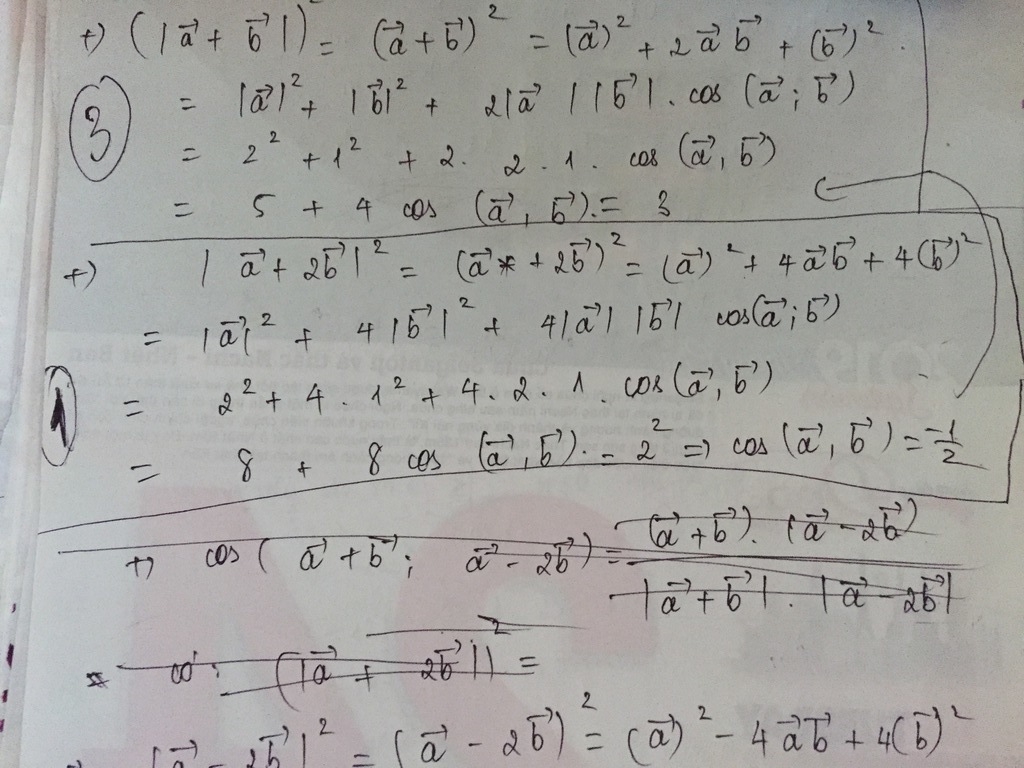 +) (|a⃗ + b⃗|)² = (a⃗ + b⃗)² = (a⃗)² + 2 a⃗ b⃗ + (b⃗)².
③ = |a⃗|² + |b⃗|² + 2|a⃗ | |b⃗|. cos (a⃗ ; b⃗)
= 2² + 1² + 2. 2 . 1 . cos (a⃗, b⃗)
= 5 + 4 cos (a⃗, b⃗). = 3
+) | a⃗ + 2b⃗ |² = (a⃗ + 2b⃗)² = (a⃗)² + 4a⃗b⃗ + 4(b⃗)²
= |a⃗|² + 4|b⃗|² + 4|a⃗| |b⃗| cos(a⃗ ; b⃗)
① = 2² + 4 . 1² + 4. 2. 1 . cos(a⃗, b⃗)
= 8 + 8 cos (a⃗, b⃗). = 2² => cos (a⃗, b⃗) = -1/2
+) cos ( a⃗ + b⃗ ; a⃗ - 2b⃗ ) = (a⃗ + b⃗). (a⃗ - 2b⃗) / |a⃗ + b⃗| . |a⃗ - 2b⃗|
có: (|a⃗ + 2b⃗|)² =
|a⃗ - 2b⃗|² = (a⃗ - 2b⃗)² = (a⃗)² - 4 a⃗b⃗ + 4(b⃗)²